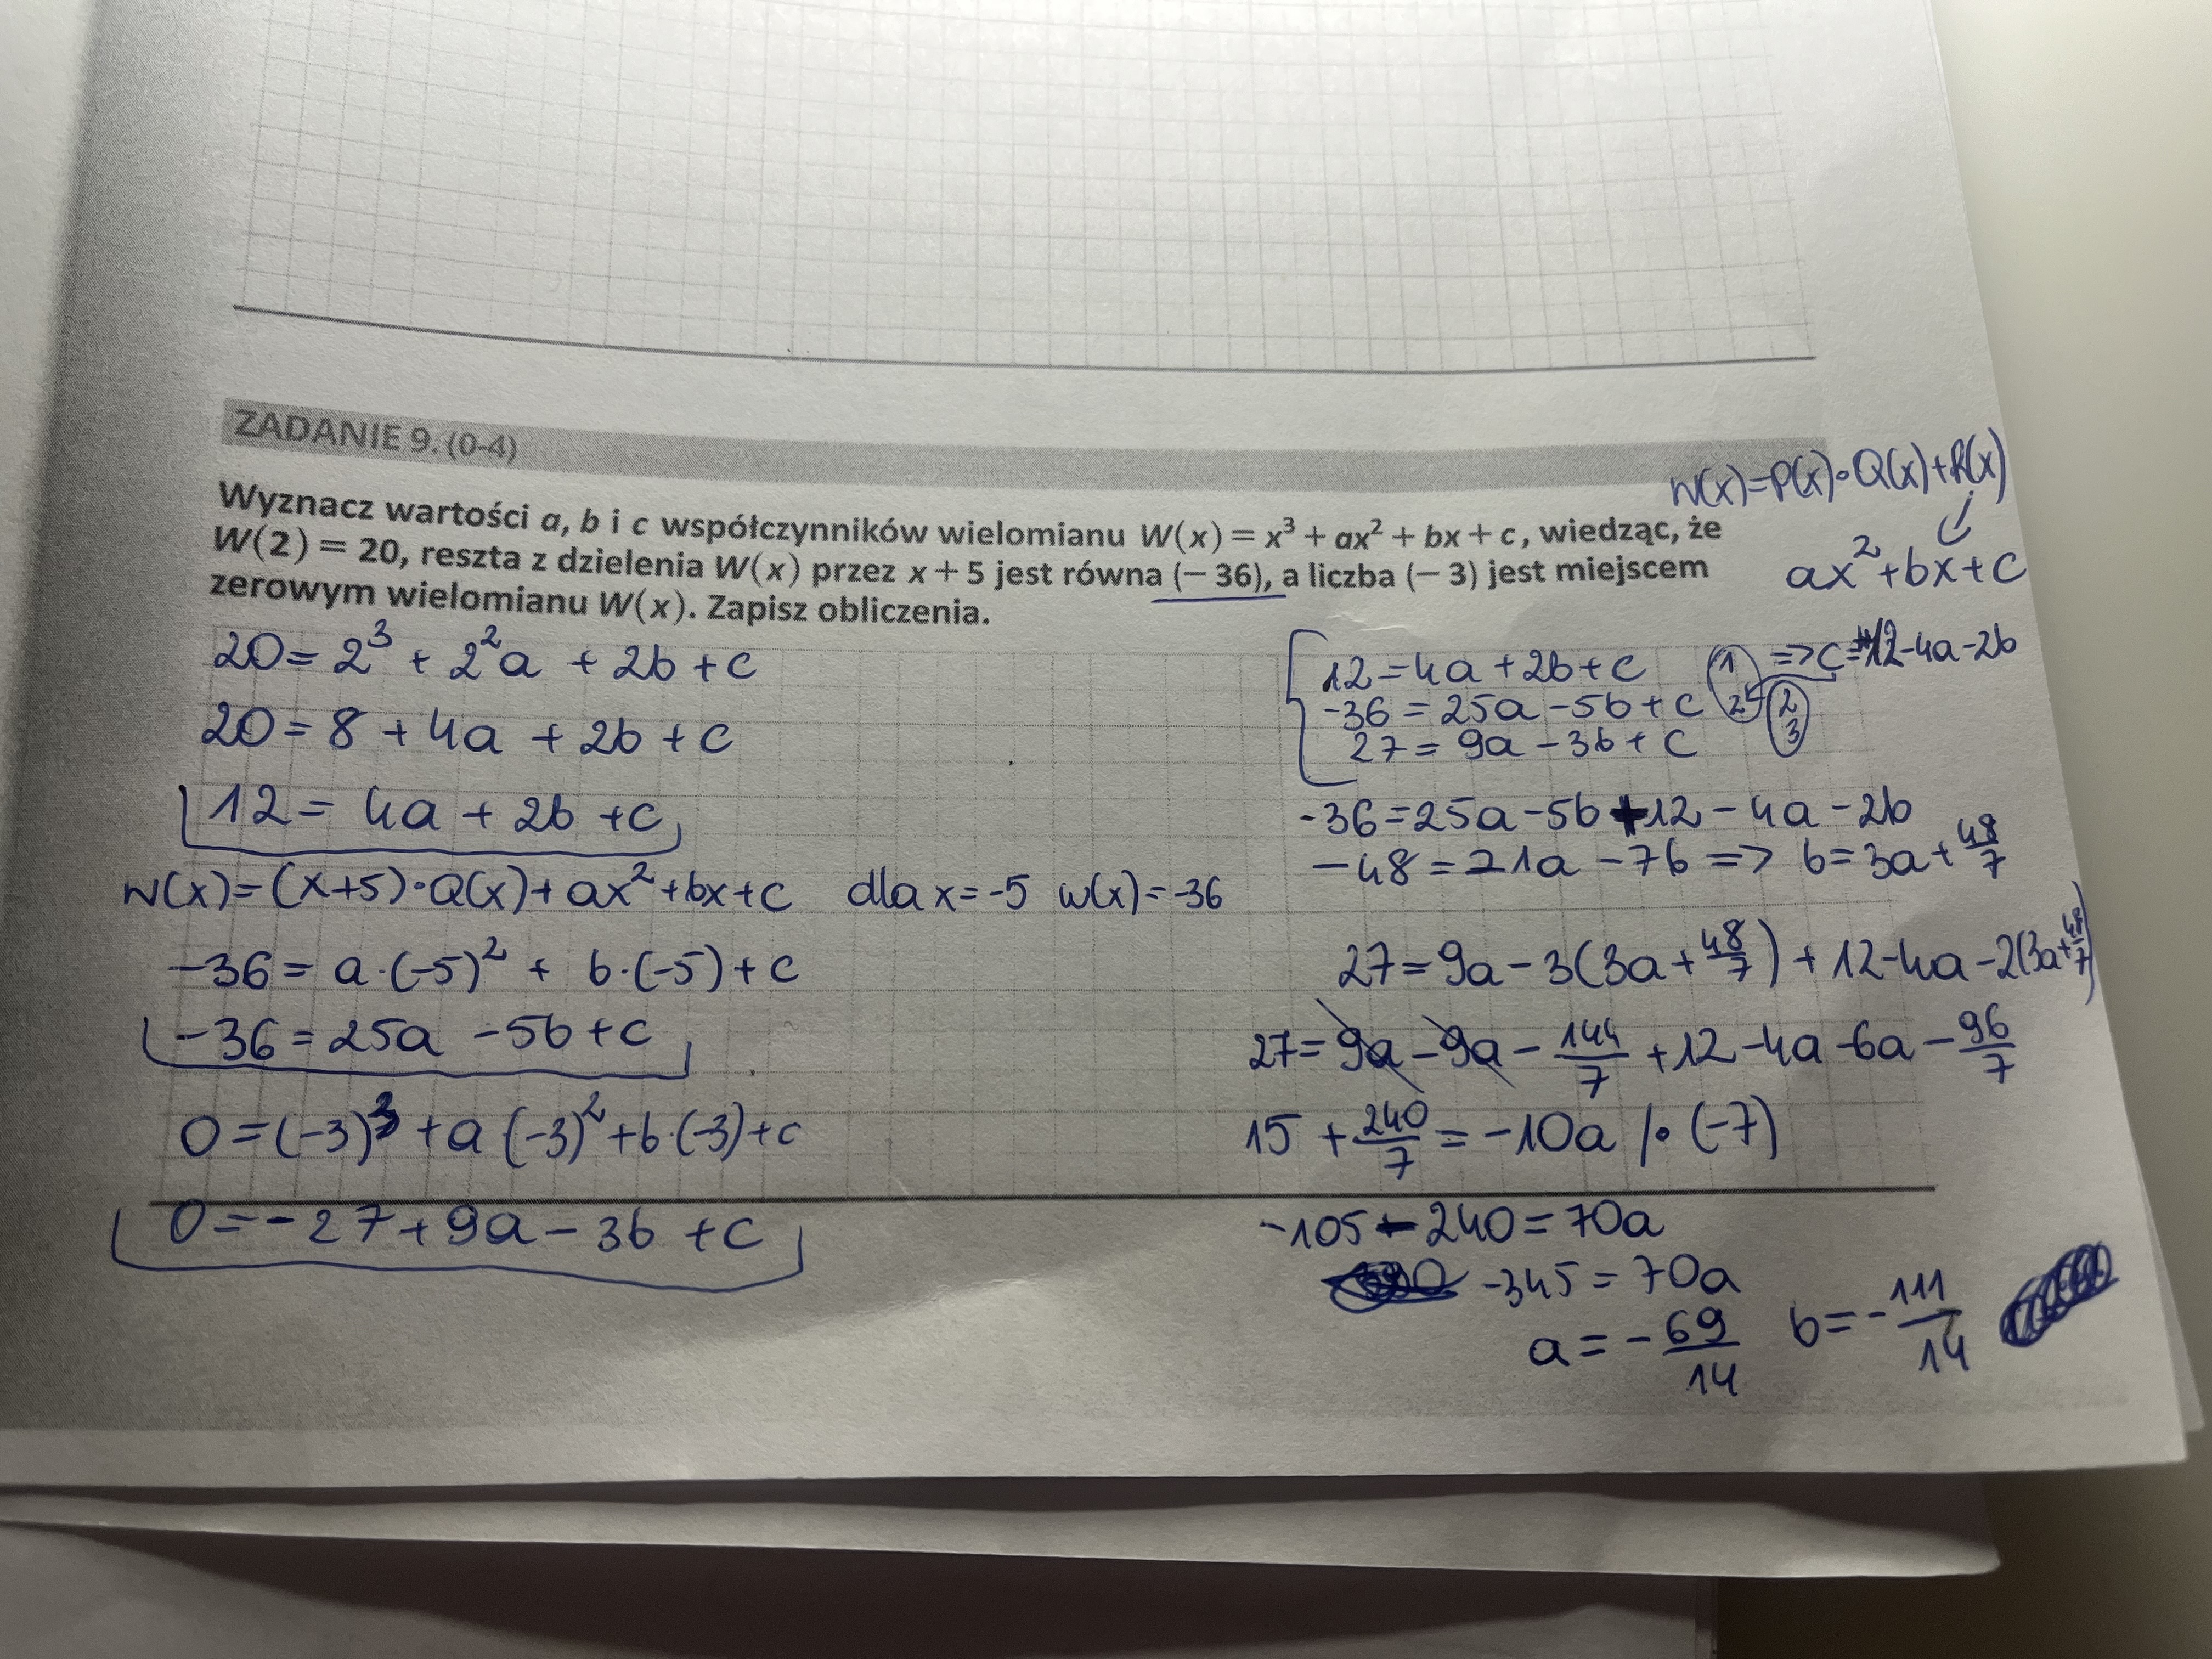 ZADANIE 9. (0-4)
W(x)=P(x)•Q(x)+R(x)
ax²+bx+c
Wyznacz wartości a, b i c współczynników wielomianu W(x) = x³ + ax² + bx + c, wiedząc, że
W(2) = 20, reszta z dzielenia W(x) przez x + 5 jest równa (– 36), a liczba (– 3) jest miejscem
zerowym wielomianu W(x). Zapisz obliczenia.
20 = 2³ + 2²a + 2b + c
20 = 8 + 4a + 2b + c
12 = 4a + 2b + c
W(x) = (x+5)•Q(x) + ax² + bx + c dla x = -5 w(x) = -36
-36 = a·(-5)² + b·(-5) + c
-36 = 25a - 5b + c
0 = (-3)³ + a(-3)² + b·(-3) + c
0 = -27 + 9a - 3b + c
12 = 4a + 2b + c 1 => c = 12 - 4a - 2b
-36 = 25a - 5b + c 2 2
27 = 9a - 3b + c 3
-36 = 25a - 5b + 12 - 4a - 2b
-48 = 21a - 7b => b = 3a + 48/7
27 = 9a - 3(3a + 48/7) + 12 - 4a - 2(3a + 48/7)
27 = 9a - 9a - 144/7 + 12 - 4a - 6a - 96/7
15 + 240/7 = -10a /• (-7)
-105 - 240 = 70a
-345 = 70a
a = - 69/14 b = - 111/14